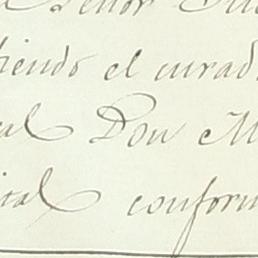 Señor
tiendo el curad
al Don M
ital conform